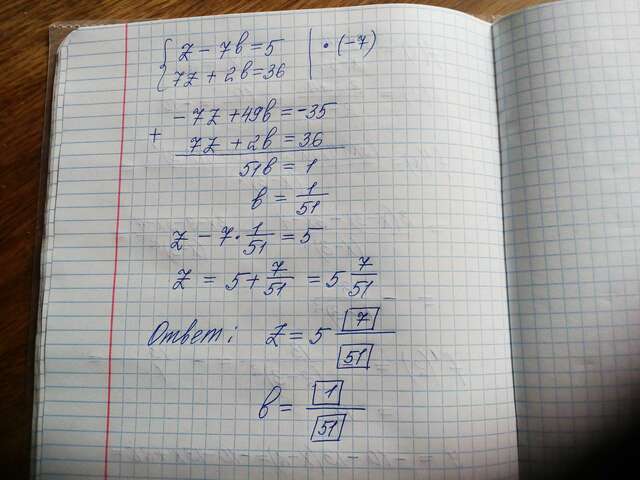 z - 7в = 5 | · (-7)
7z + 2в = 36
-7z + 49в = -35
+ 7z + 2в = 36
51в = 1
в = 1/51
z - 7 · 1/51 = 5
z = 5 + 7/51 = 5 7/51
Ответ: z = 5 7/51
в = 1/51